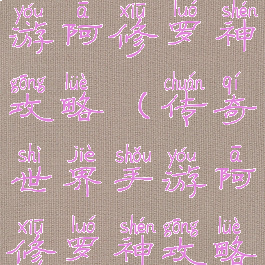 yóu ā xiū luó shén
游阿修罗神
gōng lüè chuán qí
攻略（传奇
shì jiè shǒu yóu ā
世界手游阿
xiū luó shén gōng lüè
修罗神攻略